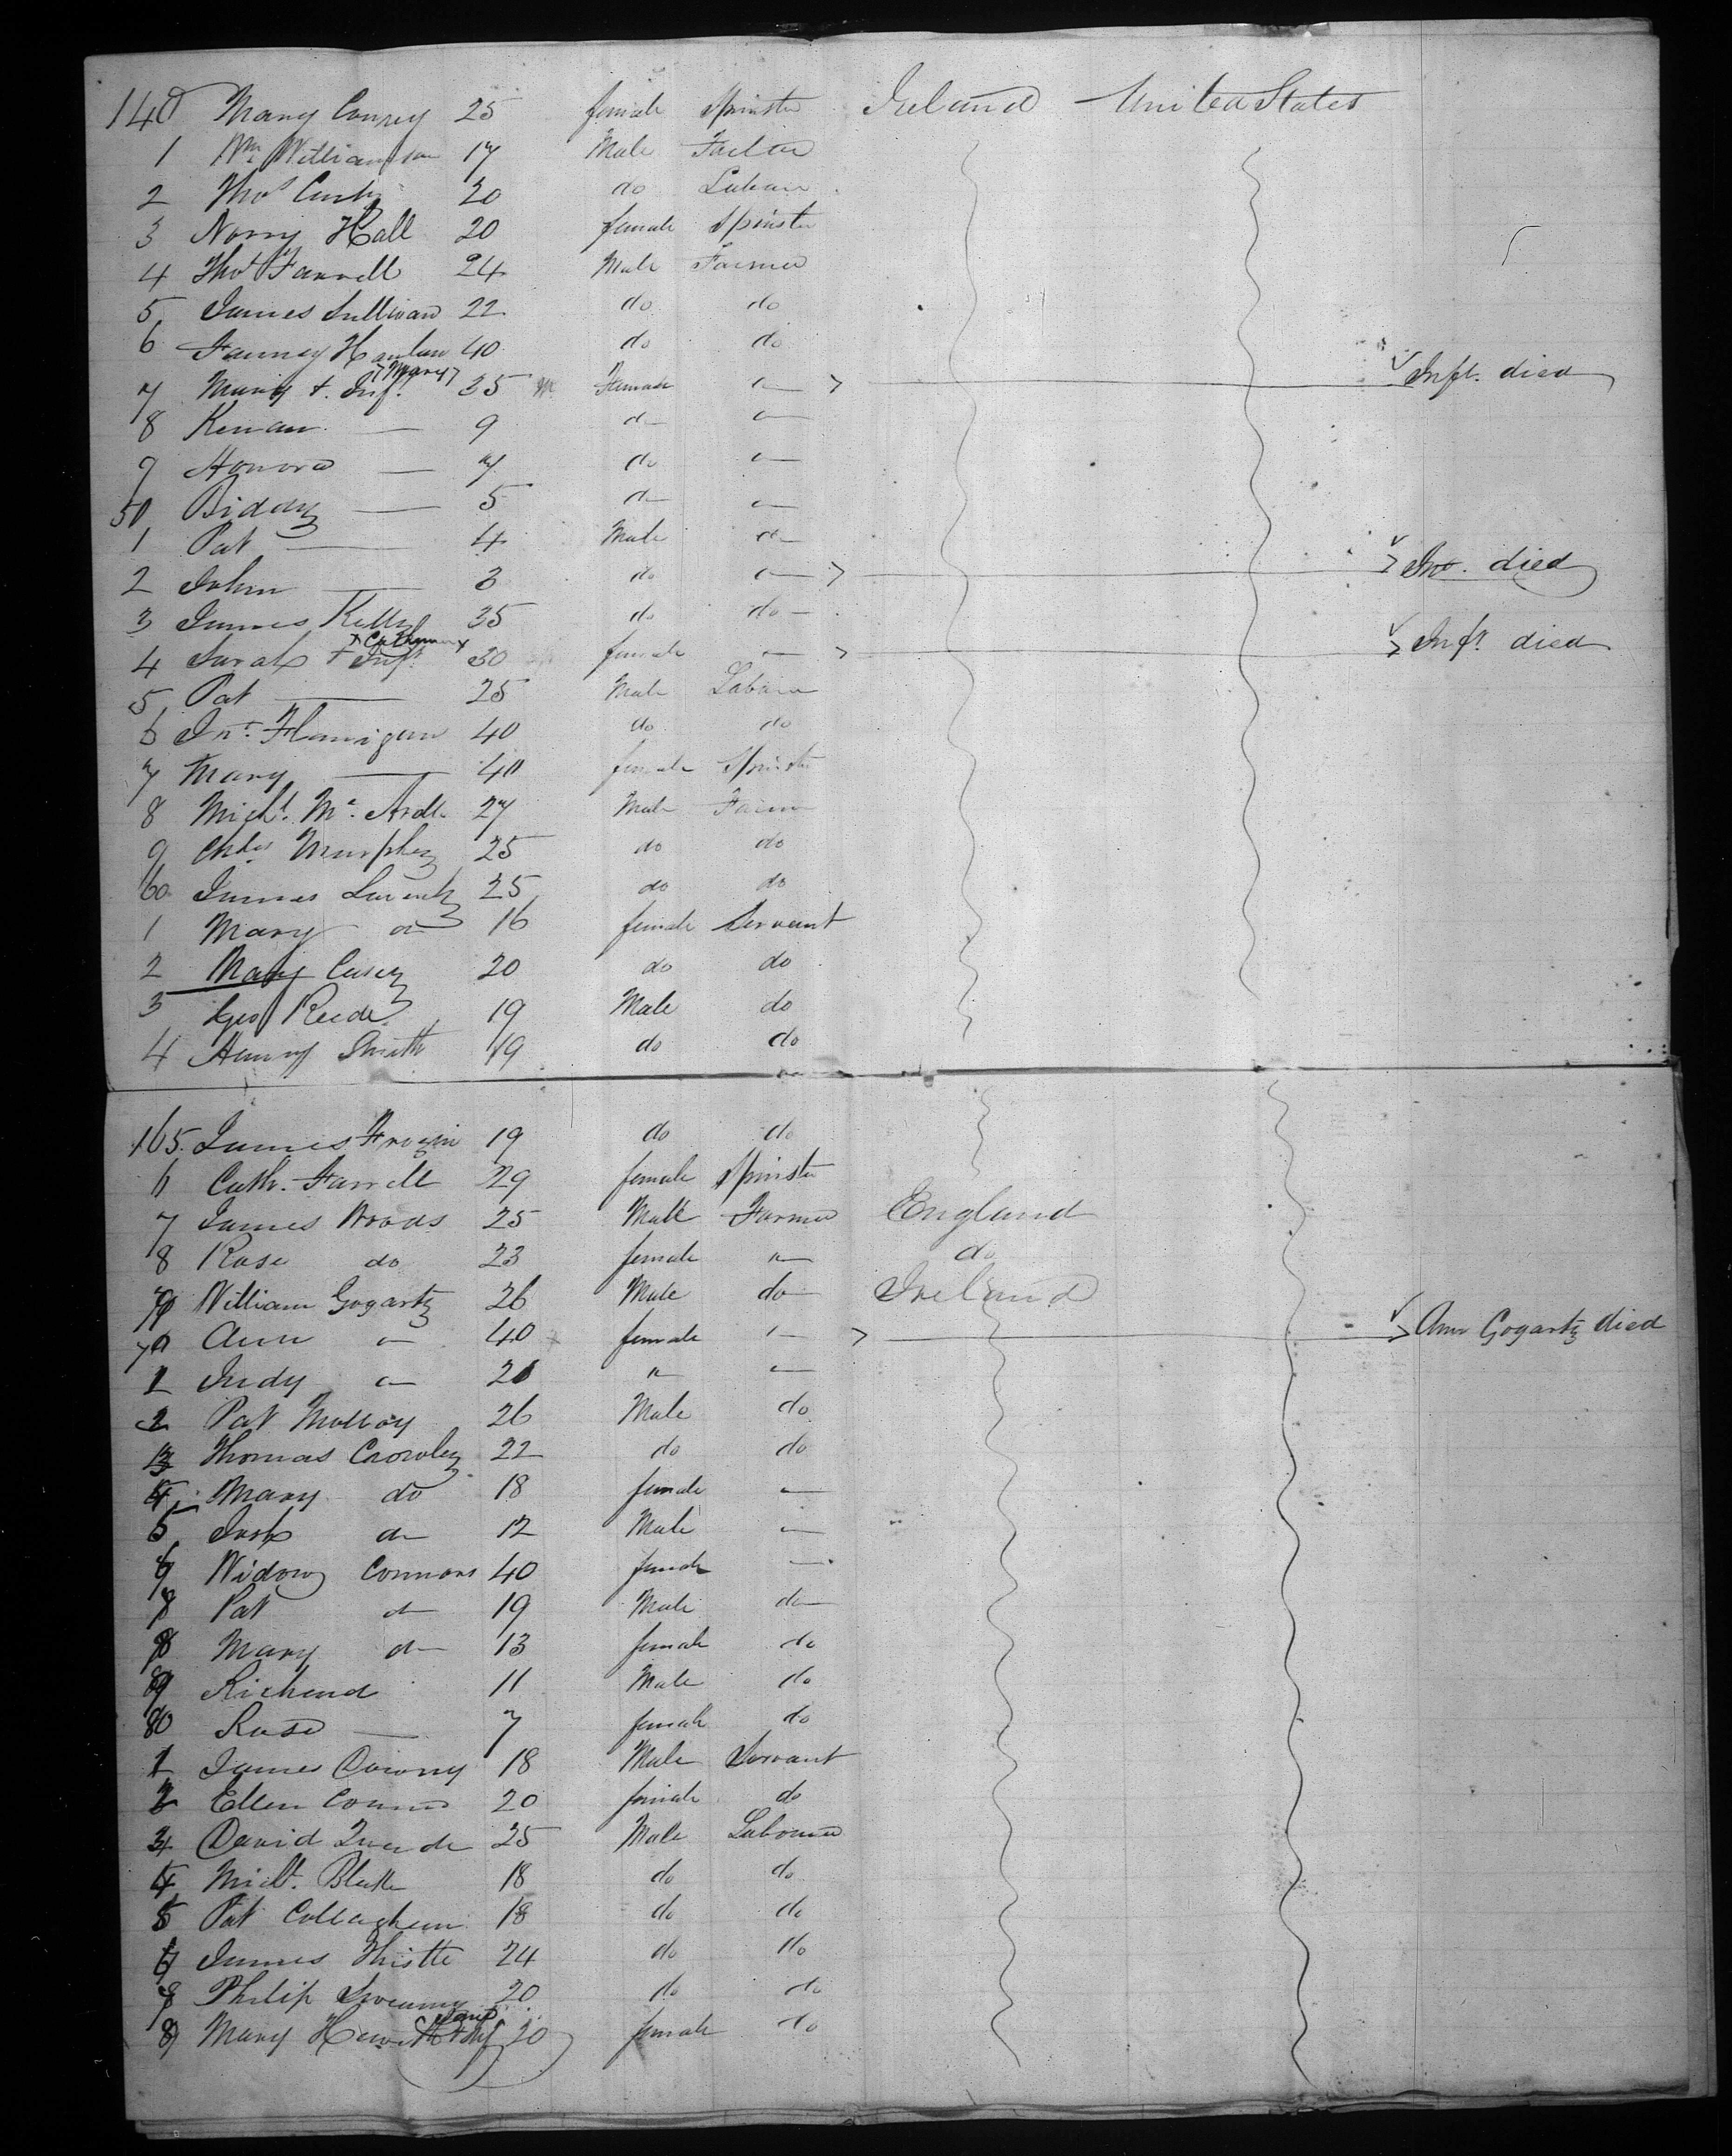 140 Mary Conrey 25 female Spinster Ireland United States
1 Wm Williamson 17 Male
2 Thos 20 do Labour
3 Norry Hall 20 female Spinster
4 Thos Farrell 24 Male Farmer
5 James Sullivan 22 do do
6 Hanlan 40 do do
7 Mary + Inft. Mary 35 Female Infts. died
8 9 do
9 Honora — 7 do
50 Biddy — 5 do
1 Pat — 4 Male do
2 John — 3 do Jno. died
3 James Kelly 35 do do
4 Sarah + Inft. Catherine 30 female Inft. died
5 Pat — 25 Male Labour
6 Jno. Flannigan 40 do do
7 Mary — 40 female Spinster
8 Michl. Mc. Ardle 27 Male Farmer
9 Chas Murphy 25 do do
60 James 25 do do
1 Mary do 16 female Servant
2 Mary Casey 20 do do
3 Geo Reede 19 Male do
4 Henry Smith 19 do do
165 James 19 do do
6 Cath. Farrell 29 female Spinster
7 James Woods 25 Male Farmer England
8 Rose do 23 female do
9 William Gogarty 26 Male do Ireland
70 Ann 40 female Ann Gogarty died
1 Judy 20
2 Pat Molloy 26 Male do
3 Thomas Crowley 22 do do
4 Mary do 18 female
5 do 12 Male
6 Widow Connors 40 female
7 Pat do 19 Male do
8 Mary do 13 female do
9 Richard 11 Male do
80 Rose — 7 female do
1 James Downy 18 Male Servant
2 Ellen 20 female do
3 David 25 Male Labourer
4 Michl. Blake 18 do do
5 Pat Collaghan 18 do do
6 James Thistle 24 do do
7 Philip Sweeny 20 do do
8 Mary Hewitt + Inf 20 female do